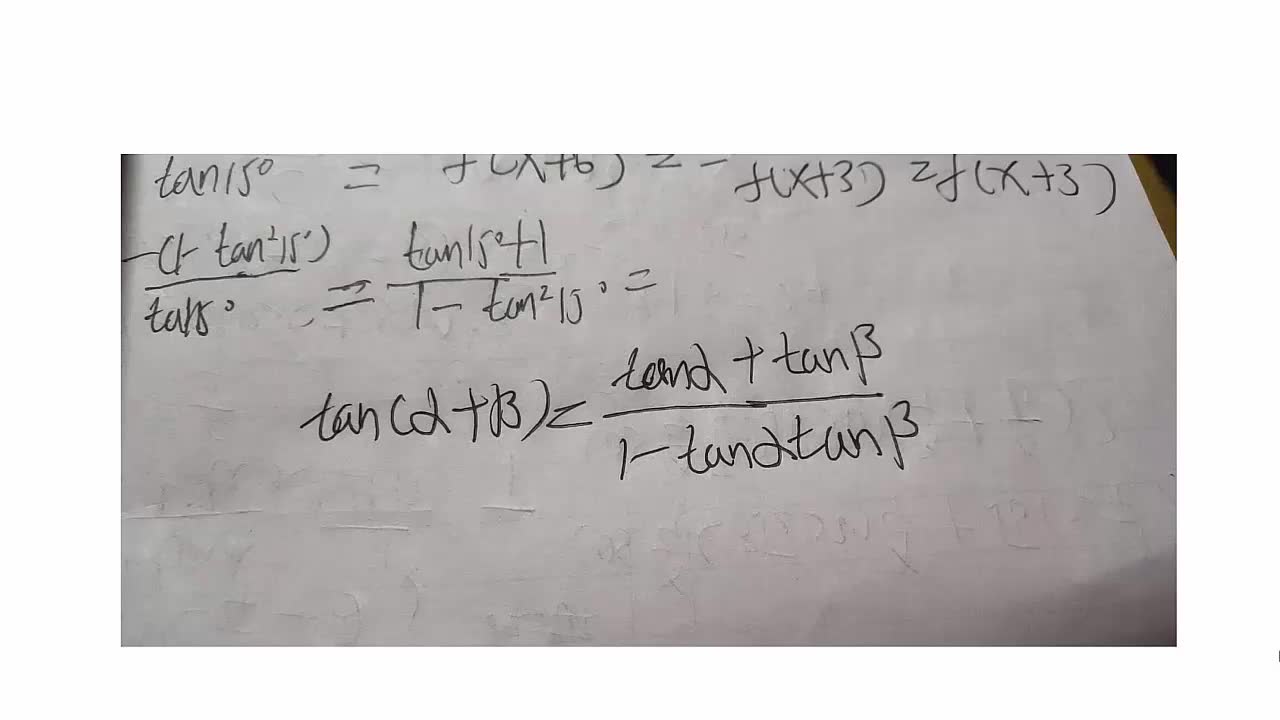 tan15° = f(x+6) = - f(x+3) = f(x+3)
-(1- tan²15°) / tan15° = tan15°+1 / 1- tan²15° =
tan(α+β)= tanα + tanβ / 1-tanαtanβ